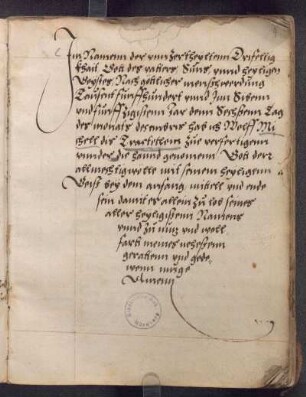 Im Namem der vnnzertheyllem Drifellig
khait Gott des vatters, Suns, vnnd heyligen
Geystes Nach göttlicher mennschwerdung
Tausent fünffhundert vnnd Im Sibenn
vndfünffzigisten Jar dem Sechsten Tag
des monats decembris hab ich Wolff Mi
chell dis Tractetlein zuverfertigenn
vnnder die hannd genomenn Gott der
allmechtig welle mit seinem heyligenn
Geist bey dem anfang mittell vnd ende
sein damit es allem zu lob seines
aller heyligistenn Namens
vnnd zu nutz vnd woll
fart meines nehesten
geratten vnd gede,
yenn müge
Amenn